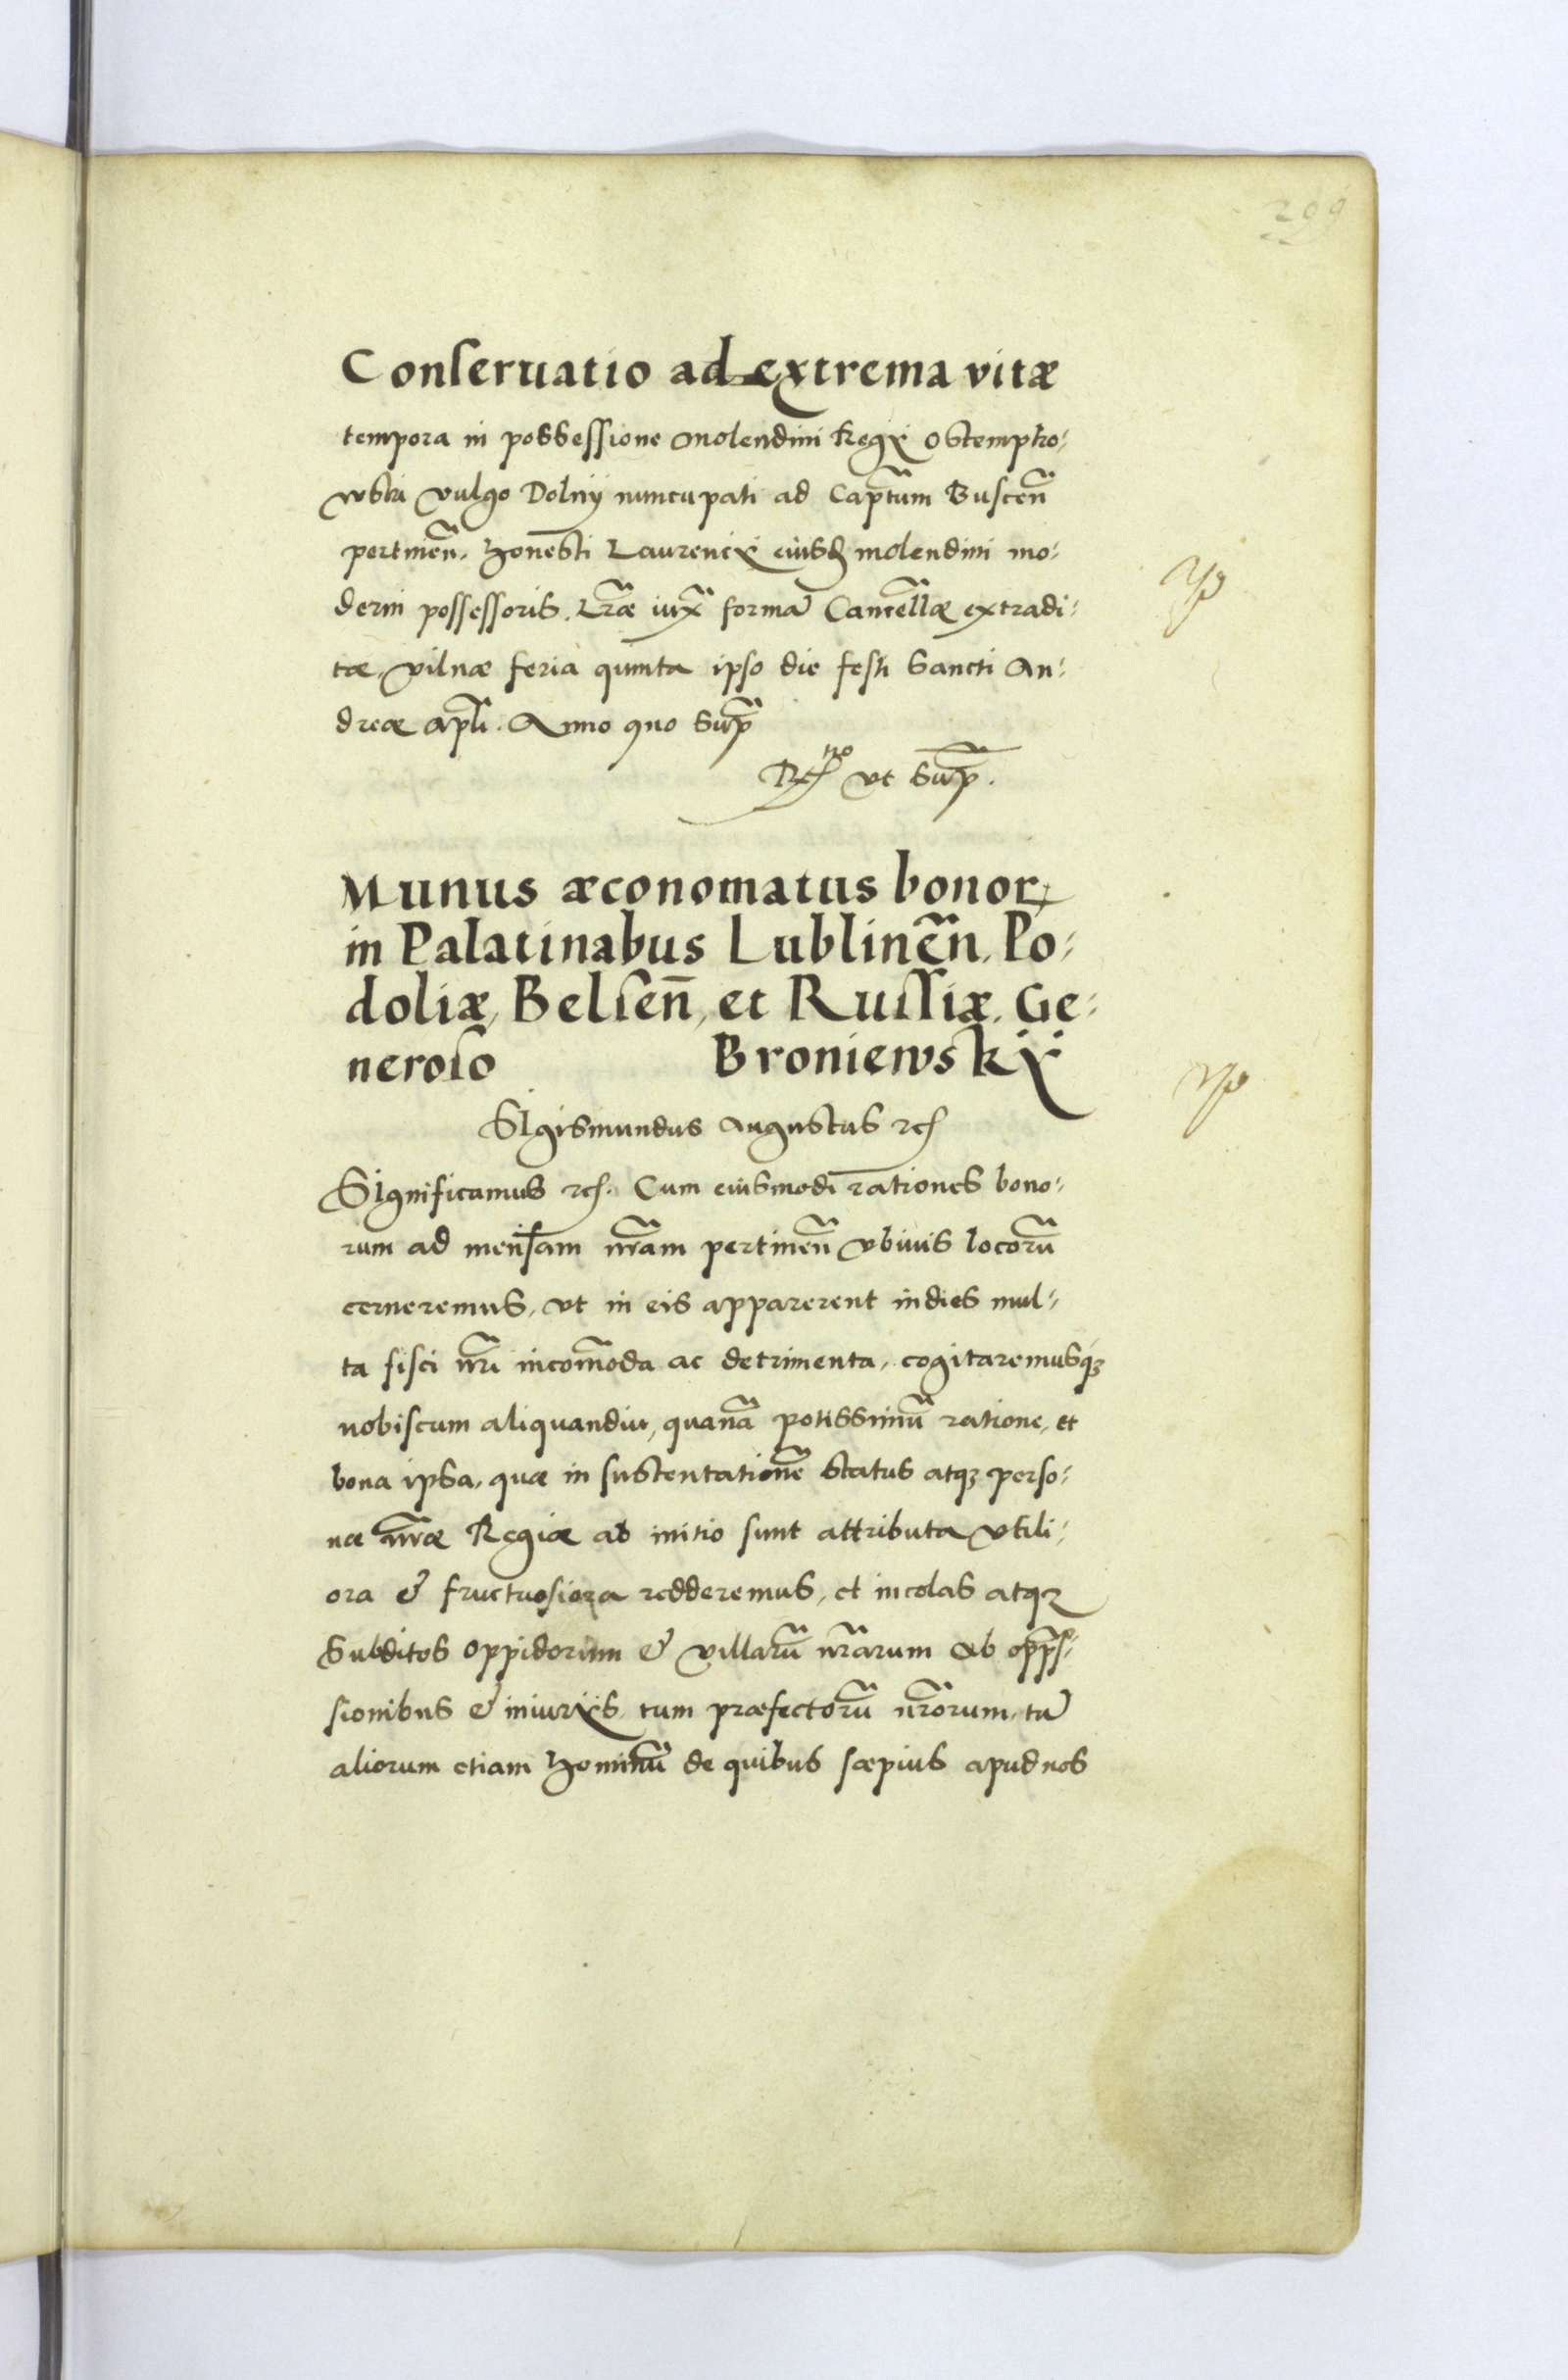 299
Conseruatio ad extrema vitæ
tempora in possessione molendini Regÿ Ostempko⸗
wski vulgo Dolny nuncupati ad Cap̃tum Buscen̄
pertinen̄, honesti Laurencÿ eiusd molendini mo⸗
derni possessoris. Lr̃æ iux̃ formā Cancell̃æ extradi⸗
tæ, vilnæ feria quinta ipso die festi Sancti An⸗
dreæ apl̃i. Anno quo sup̃
R͠tio vt sup̃.
Munus œconomatus bonorꝝ
in Palatinabus Lublinen̄, Po⸗
doliæ, Belsen̄, et Russiæ, Ge⸗
neroso Broniewskÿ
SIgismundus Augustus ꝛcꝭ
SIgnificamus ꝛcꝭ. Cum eiusmodi rationes bono⸗
rum ad mensam nr̃am pertinen̄ vbiuis locorū
cerneremus, vt in eis apparerent indies mul⸗
ta fisci nr̃i incom̄oda ac detrimenta, cogitaremusq́ꝫ
nobiscum aliquandiu, quanā potissimū ratione, et
bona ipsa, quæ in sustentationē status atqꝫ perso⸗
næ nr̃æ Regiæ ab initio sunt attributa vtili⸗
ora & fructuosiora redderemus, et incolas atqꝫ
subditos oppidorum & villarū nr̃arum ab opp̃s⸗
sionibus & iniurÿs tum præfectorū nr̃orum, tū
aliorum etiam hominū de quibus sæpius apud nos